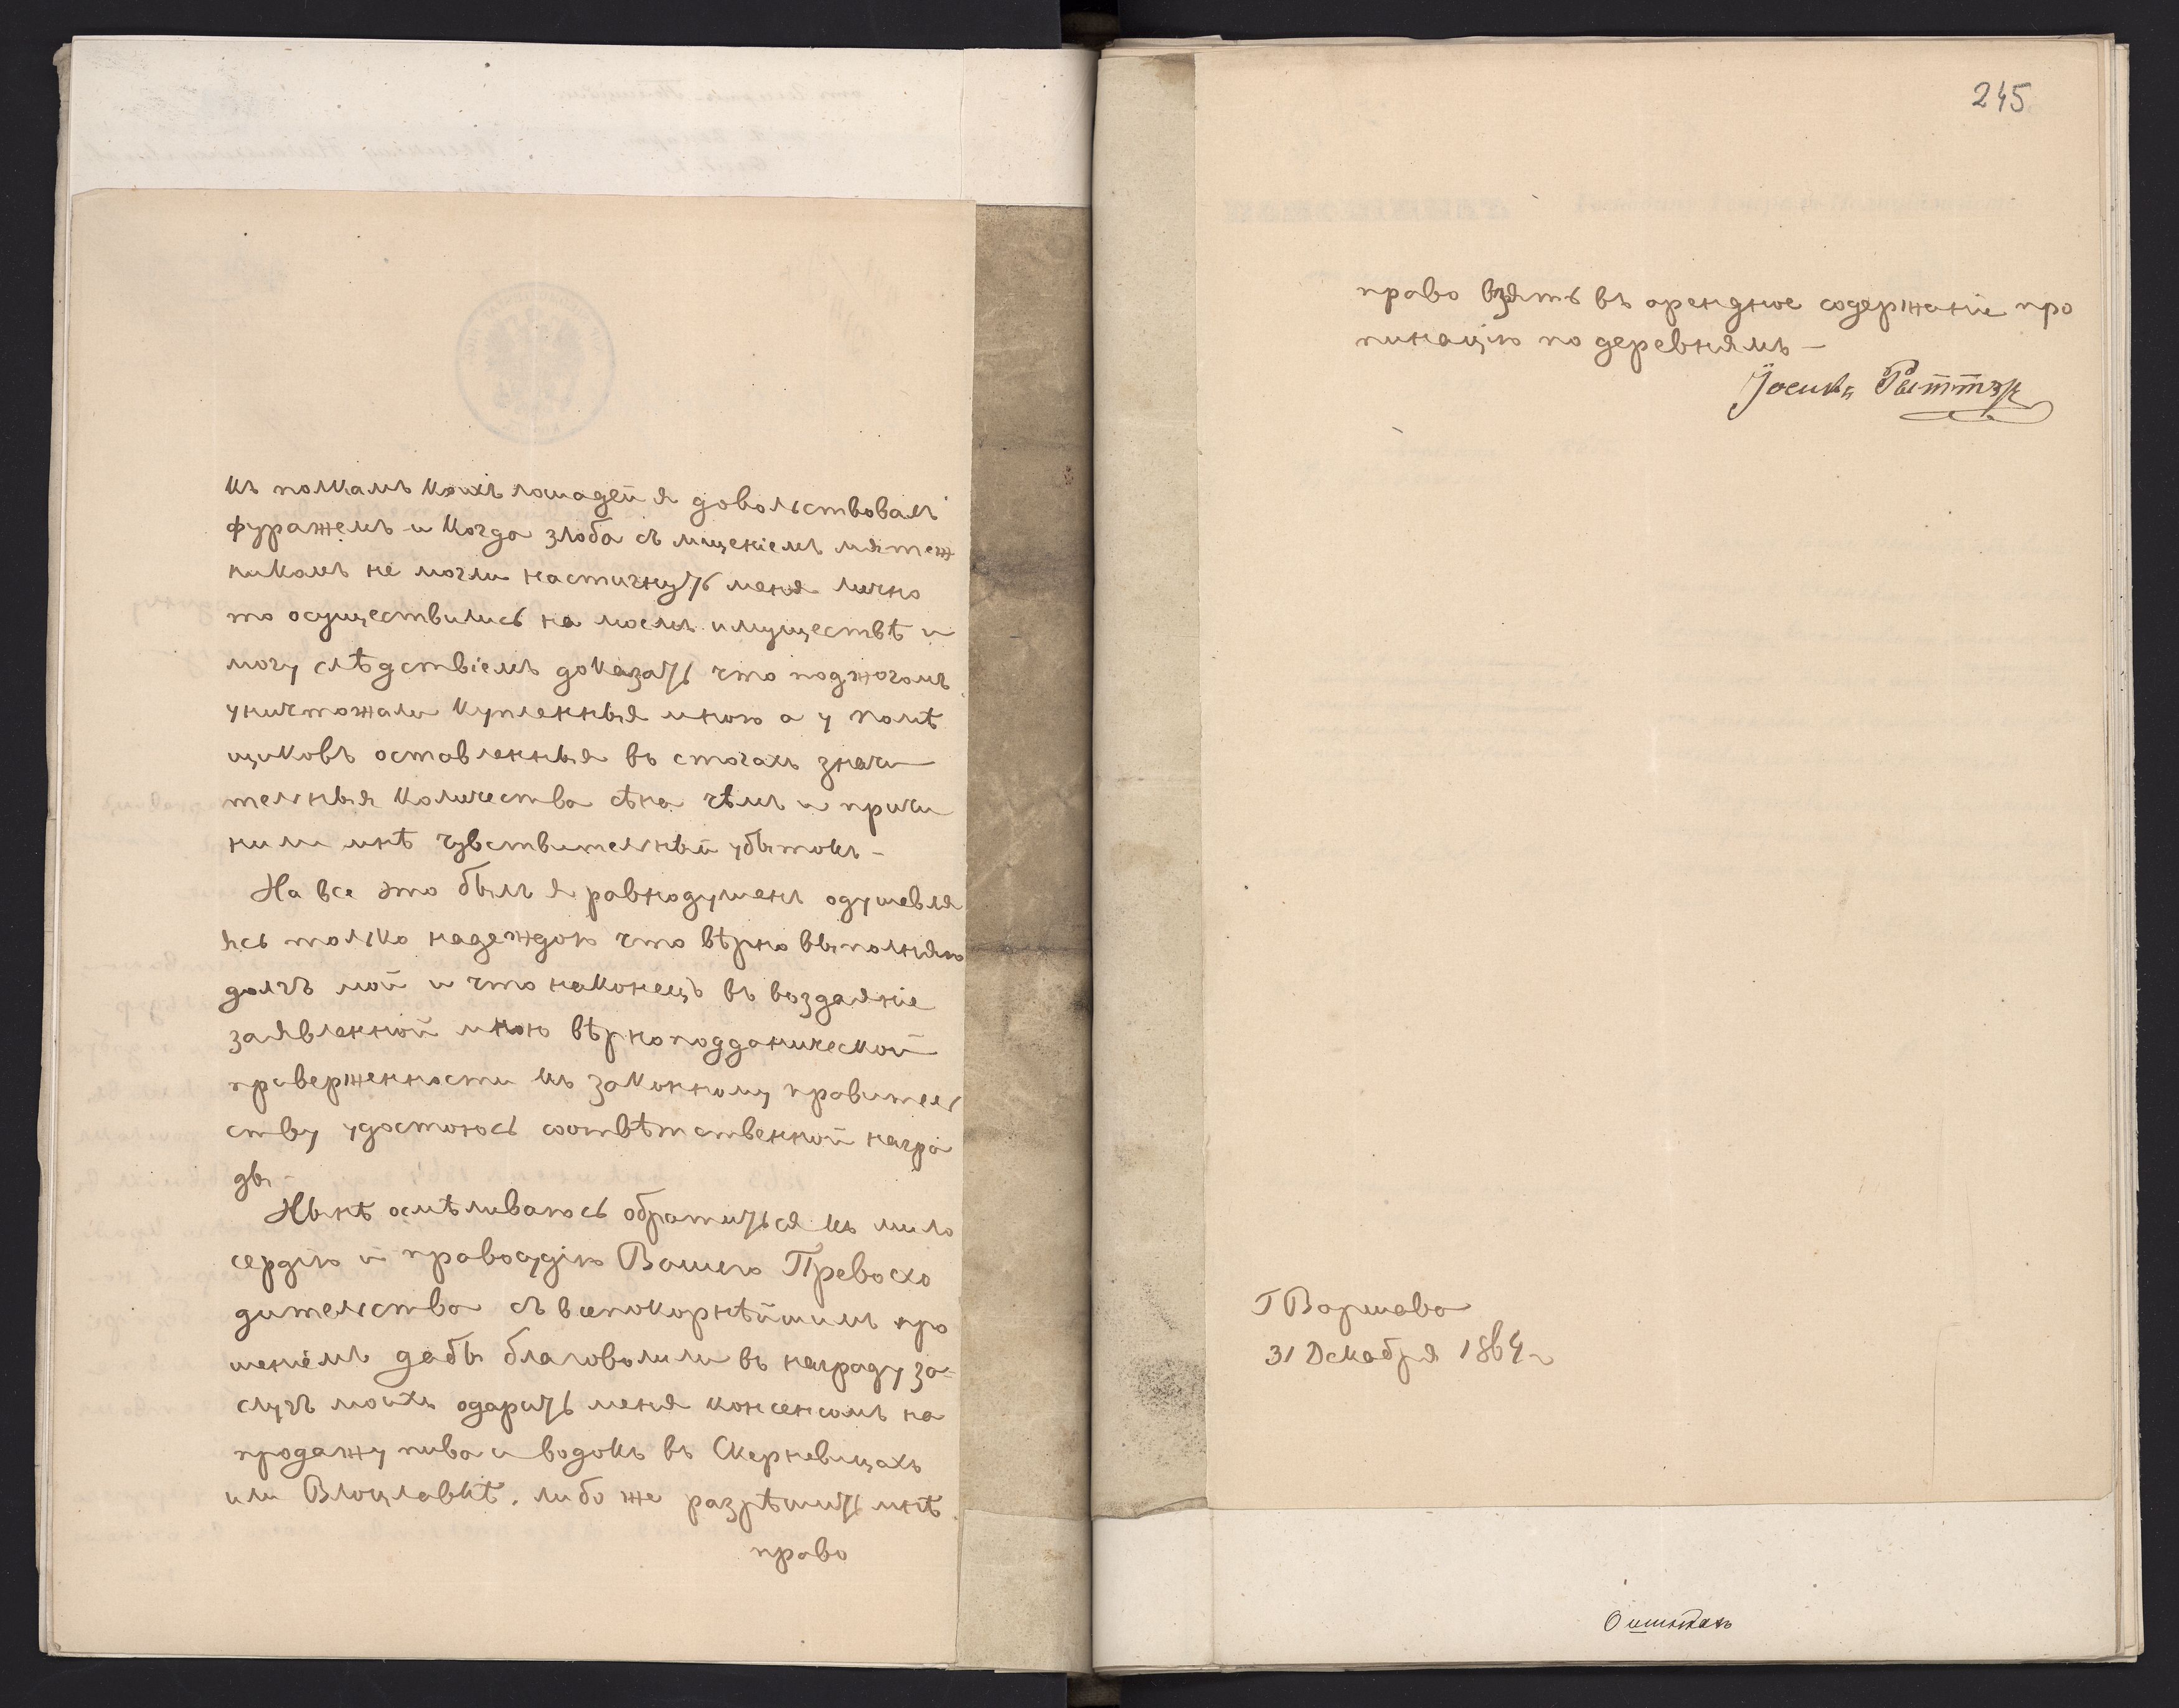 къ полкамъ коихъ лошадей я довольствовалъ
фуражемъ и когда злоба съ мщеніемъ мятеж
никовъ не могли настигнуть меня лично
то осуществились на моемъ имуществѣ и
могу слѣдствіемъ доказать что поджогомъ
уничтожали купленныя мною а у помѣ
щиковъ оставленныя въ стогахъ значи
тельныя количества сѣна чѣмъ и причи
нили мнѣ чувствительный убытокъ –
На все это былъ я равнодушенъ одушевля
ясь только надеждою что вѣрно выполняю
долгъ мой и что наконецъ въ воздаяніе
заявленной мною вѣрноподданической
преверженности къ законному правитель
ству удостоюсь соотвѣтственной награ
ды –
Нынѣ осмѣливаюсь обратиться къ мило
сердію и правосудію Вашего Превосхо
дительства съ всепокорнѣйшимъ про
шеніемъ дабы благоволили въ награду за=
слугъ моихъ одарить меня консенсомъ на
продажу пива и водокъ въ Скерневицахъ
или Влоцлавкѣ. либо же разрѣшить мнѣ
право
245
право взять въ арендное содержаніе про
пинацію по деревнямъ –
Іосикъ Риттэр
Г Варшава
31 Декабря 1864 г